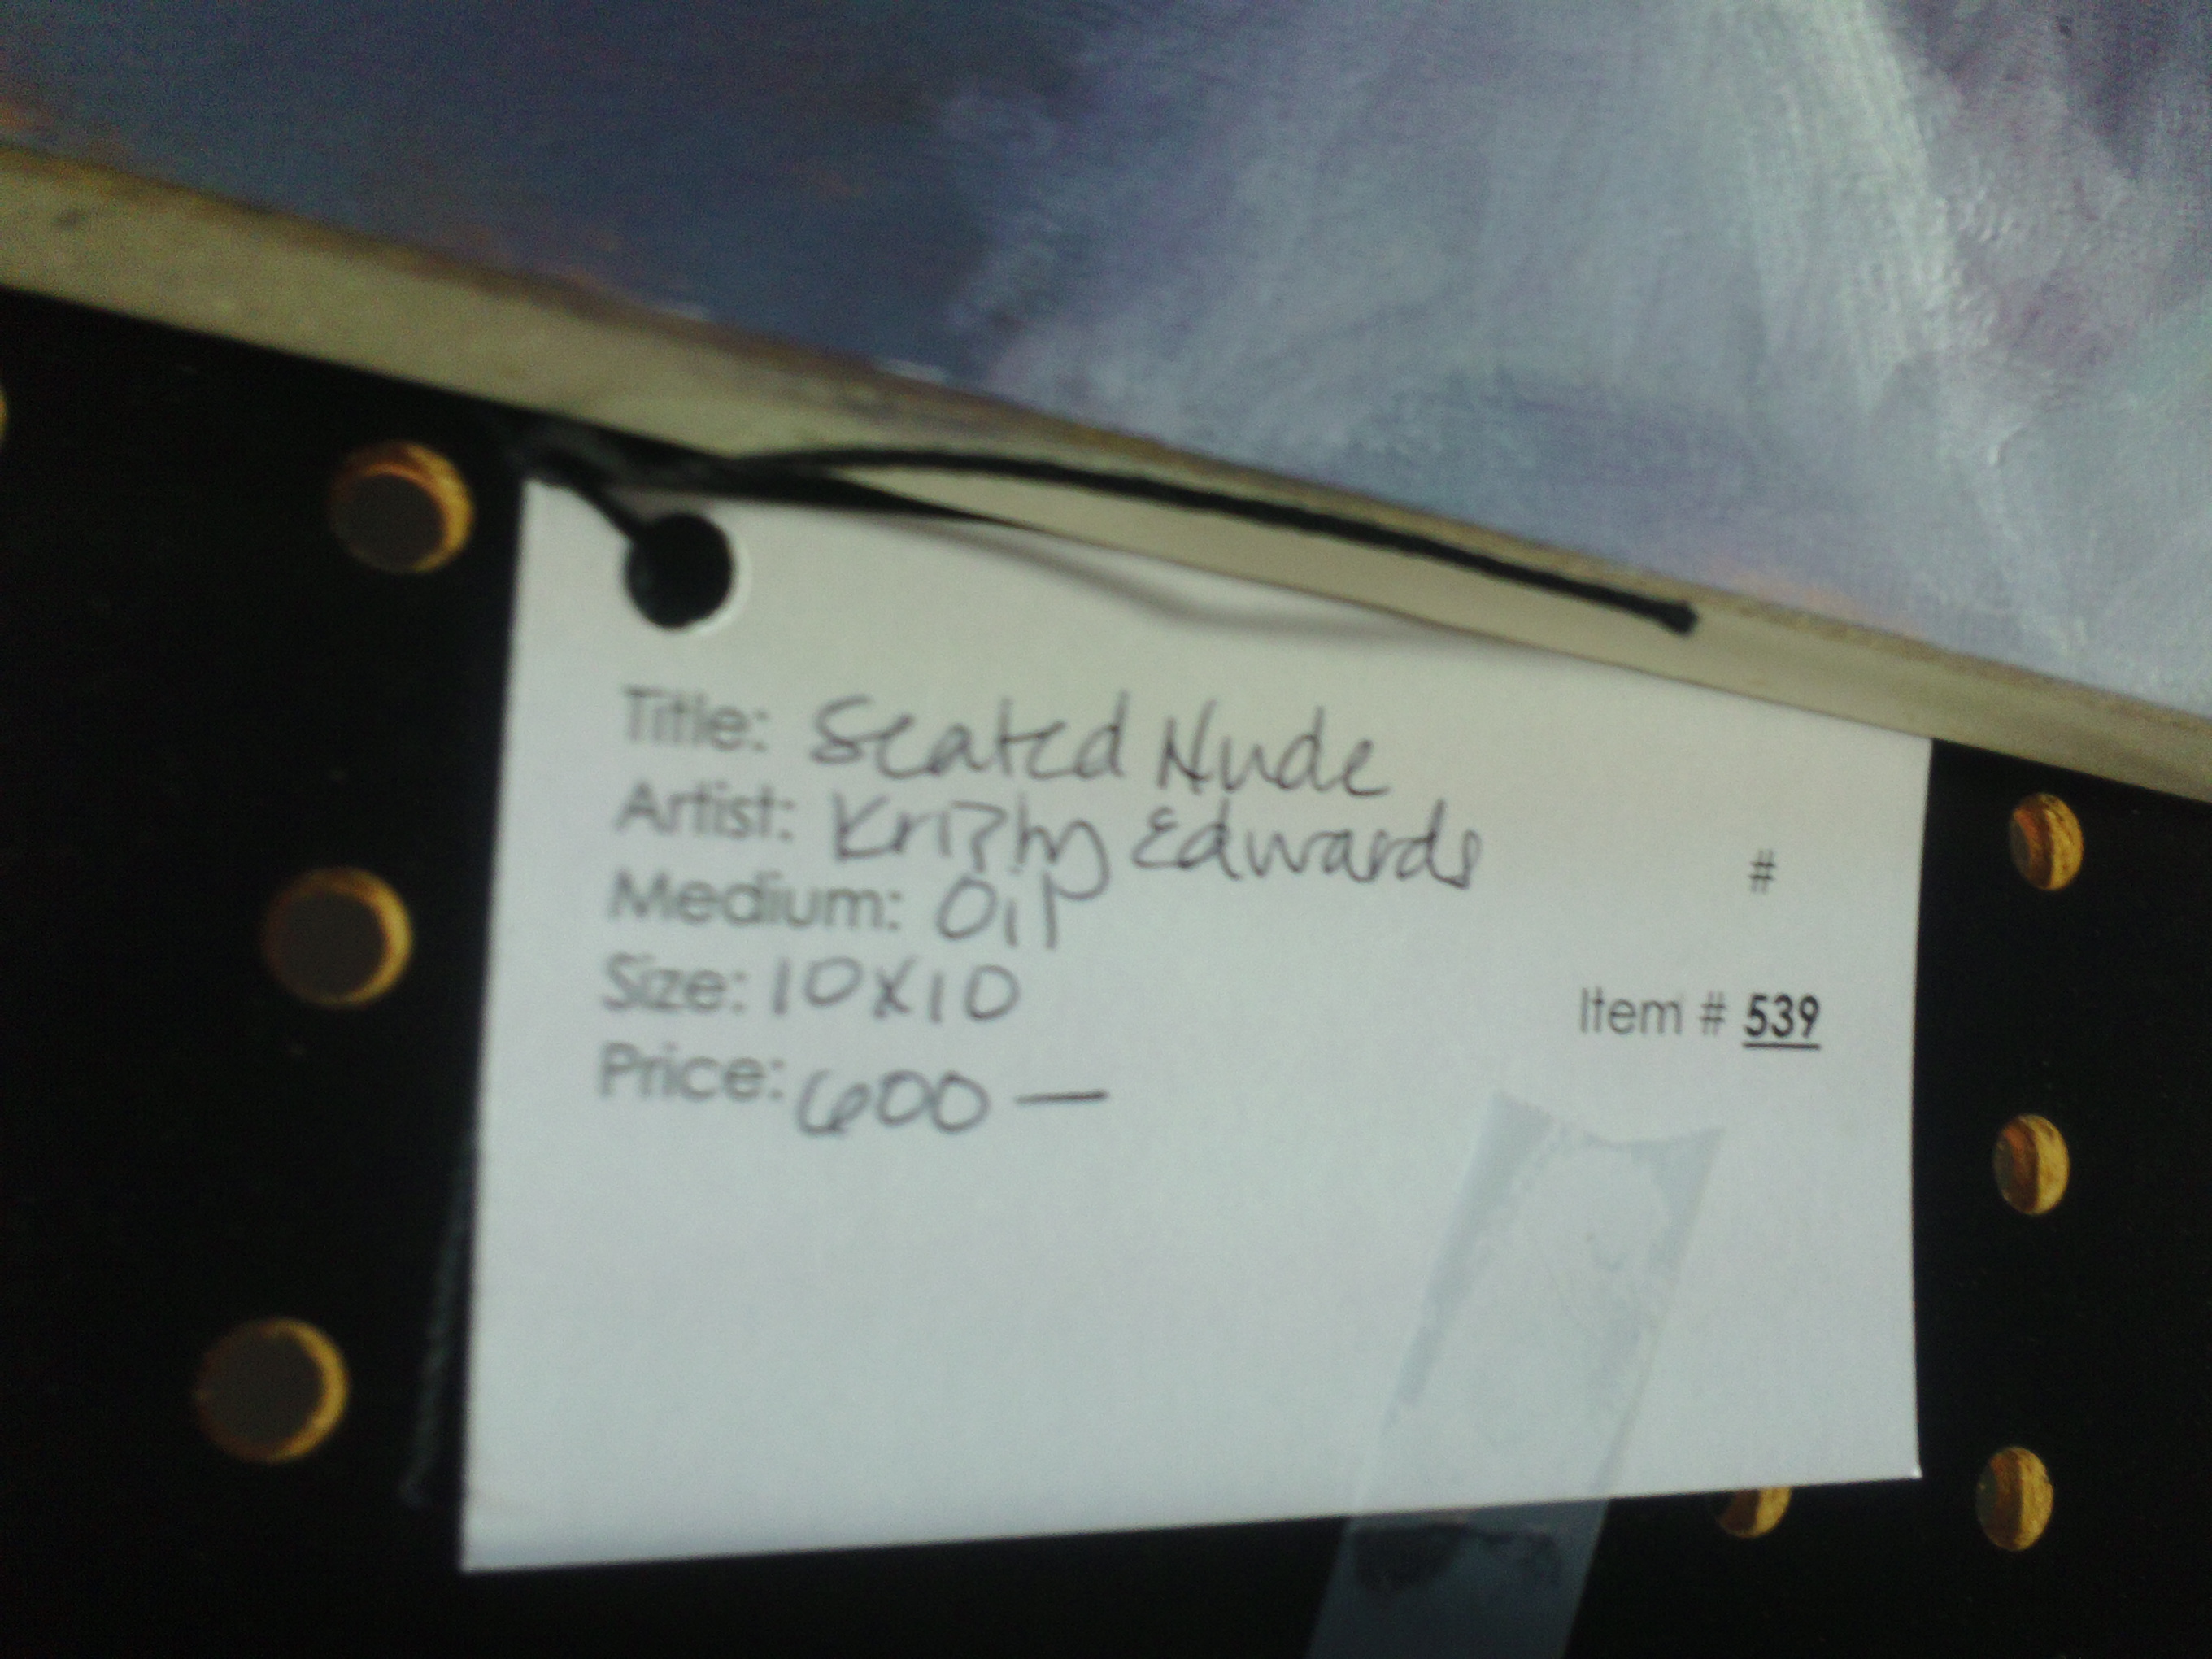 Title: Seated Nude
Artist: Edwards
Medium: Oil
Size: 10x10
Price: 600 —
#
Item # 539